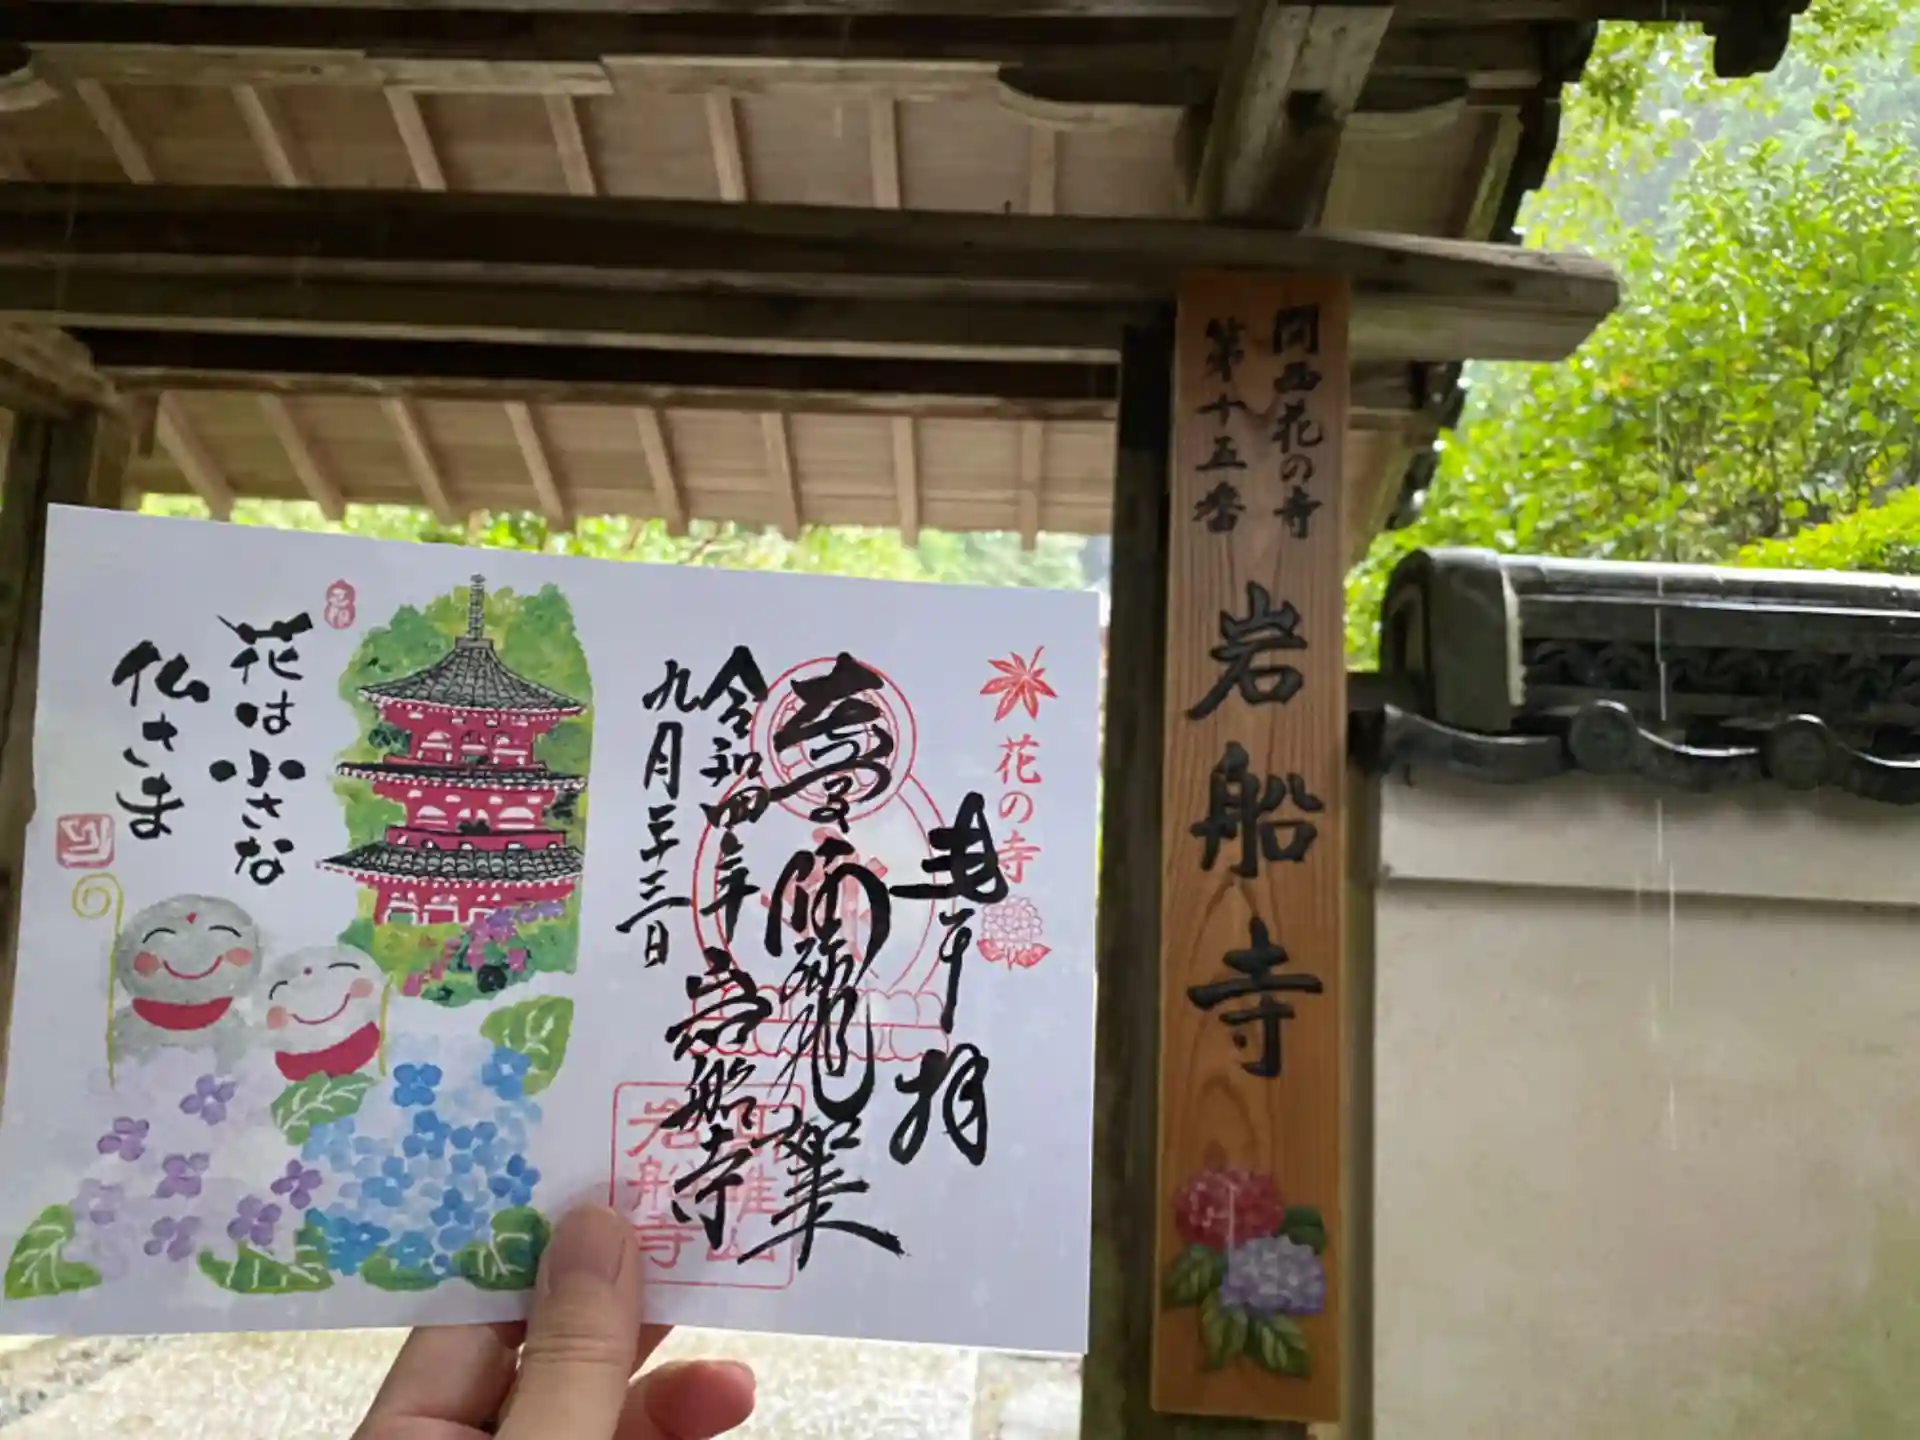 花は小さな
仏さま
花の寺
奉拝
阿弥陀如来
令和四年
九月二十三日
岩船寺
岩船寺
関西花の寺
第十五番
岩船寺